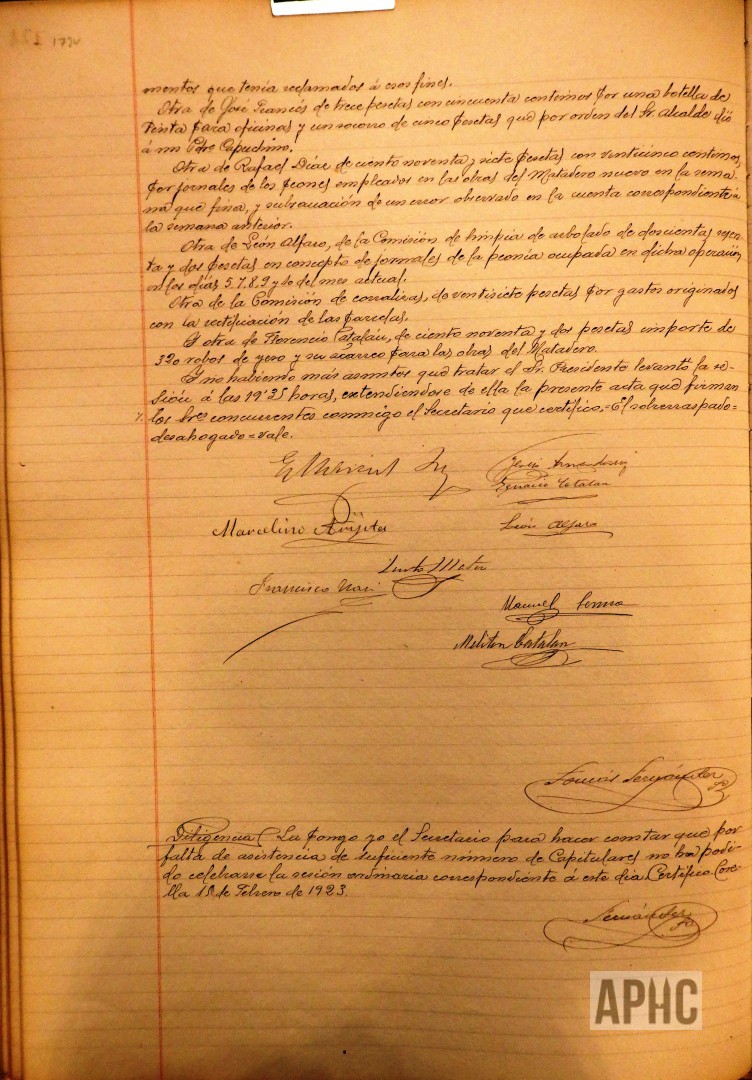 174
mentos que tenía reclamados á esos fines.
Otra de José Francés de trece pesetas con cincuenta centimos por una botella de
tinta para oficinas y un socorro de cinco pesetas que por orden del Sr. Alcalde dió
á un Pdre Capuchino.
Otra de Rafael Díaz de ciento noventa y siete pesetas con venticinco centimos,
por jornales de los peones empleados en las obras del Matadero nuevo en la sema-
na que fina, y subsanación de un error observado en la cuenta correspondiente á
la semana anterior.
Otra de León Alfaro, de la Comisión de limpia de arbolado de doscientas
ta y dos pesetas en concepto de jornales de la peonía ocupada en dicha operación
en los días 5.7.8.9 y 10 del mes actual.
Otra de la Comisión de corralizas, de ventisiete pesetas por gastos originados
con la rectificación de las parcelas.
Y otra de Florencio Catalán, de ciento noventa y dos pesetas importe de
320 robos de yeso y su acarreo para las obras del Matadero.
Y no habiendo más asuntos que tratar el Sr. Presidente levantó la se-
sión á las 19'25 horas, extendiendose de ella la presente acta que firman
los Sres concurrentes conmigo el Secretario que certifico.=El sobrerraspado=
desahogado=vale.
Ignacio Catalán
Marcelino Arigita
León Alfaro
Mateo
Francisco
Manuel
Meliton Catalán
Tomás Fernández
Diligencia) La pongo yo el Secretario para hacer constar que por
falta de asistencia de suficiente número de Capitulares no ha podi-
do celebrarse la sesión ordinaria correspondiente á este día. Certifico Core-
lla 15 de Febrero de 1923.
Fernández
APHC